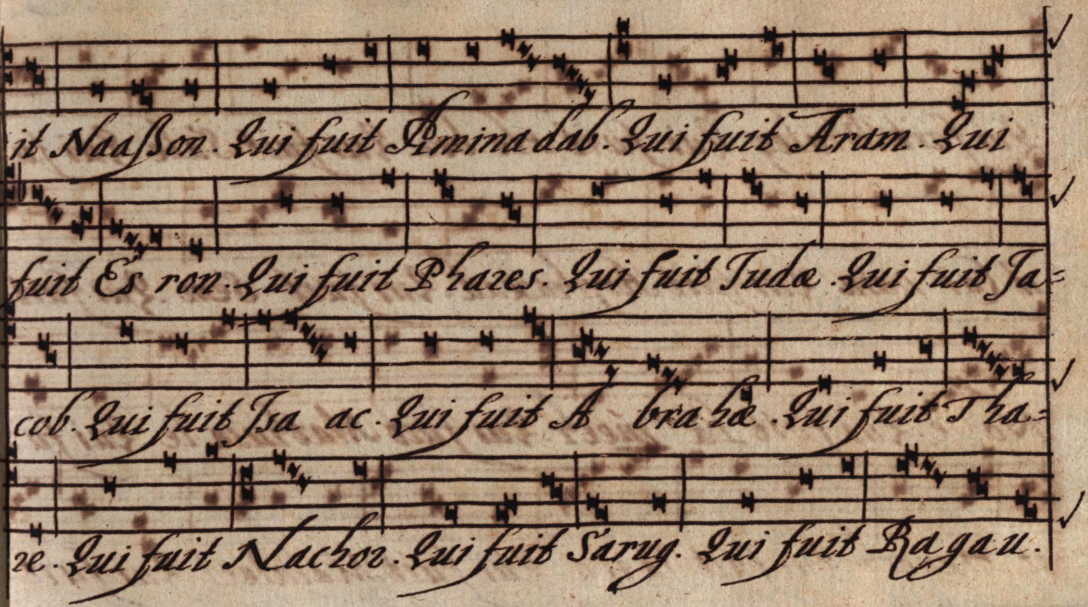 it Naaßon. Qui fuit Aminadab. Qui fuit Aram. Qui
fuit Es ron. Qui fuit Phares. Qui fuit Judæ. Qui fuit Ja=
cob. Qui fuit Isa ac. Qui fuit A brahæ. Qui fuit Tha=
re. Qui fuit Nachor. Qui fuit Sarug. Qui fuit Ragau.